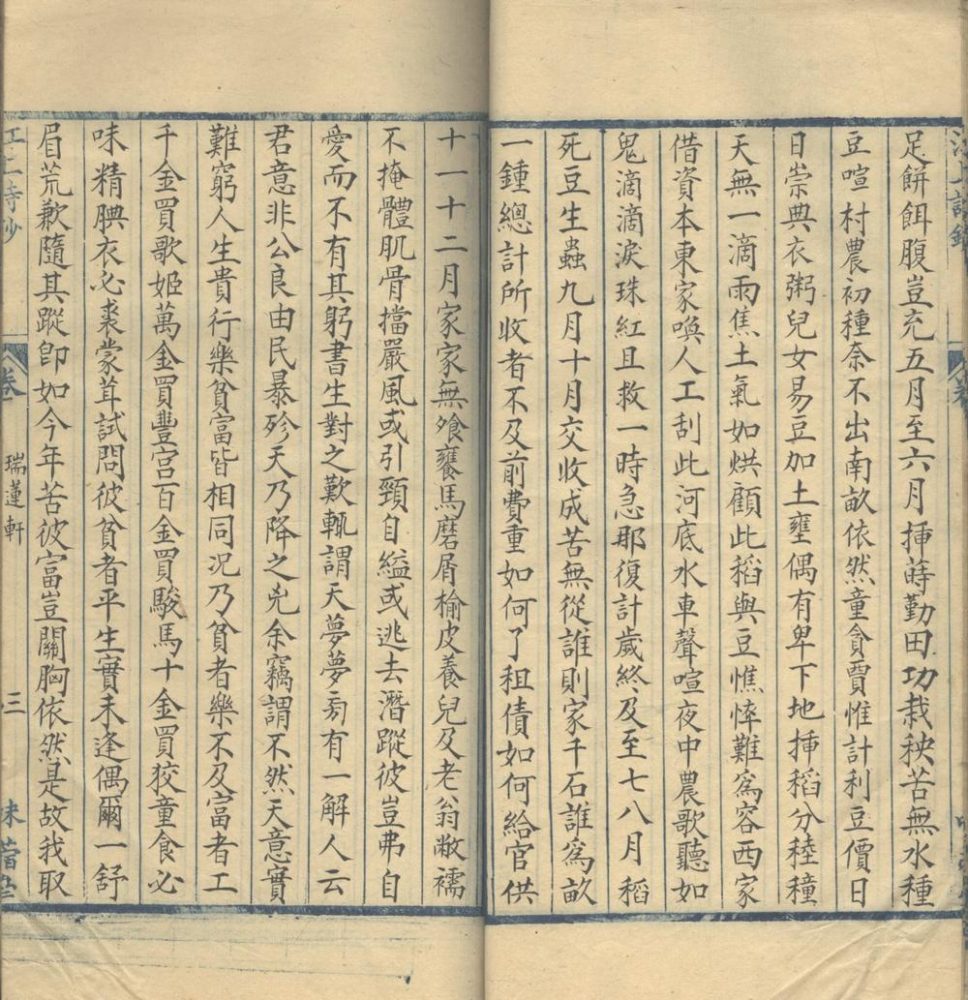 足餅餌腹豈充五月至六月揷蒔勤田功栽秧苦無水種
豆喧村農初種奈不出南畝依然童貪賈惟計利豆價日
日崇典衣粥兒女易豆加土壅偶有卑下地揷稻分稑穜
天無一滴雨焦土氣如烘顧此稻與豆憔悴難爲容西家
借資本東家喚人工刮此河底水車聲喧夜中農歌聽如
鬼滴滴淚珠紅且救一時急那復計歲終及至七八月稻
死豆生蟲九月十月交收成苦無從誰則家千石誰爲畝
一鍾總計所收者不及前費重如何了租債如何給官供
十一十二月家家無飧饔馬磨屑榆皮養兒及老翁敝襦
不掩體肌骨擋嚴風或引頸自縊或逃去潛蹤彼豈弗自
愛而不有其躬書生對之歎輒謂天夢夢旁有一解人云
君意非公良由民暴殄天乃降之兇余竊謂不然天意實
難窮人生貴行樂貧富皆相同況乃貧者樂不及富者工
千金買歌姬萬金買豐宮百金買駿馬十金買狡童食必
味精腆衣必裘蒙茸試問彼貧者平生實未逢偶爾一舒
眉荒歉隨其蹤卽如今年苦彼富豈關胸依然是故我取
卷一
瑞蓮軒
三